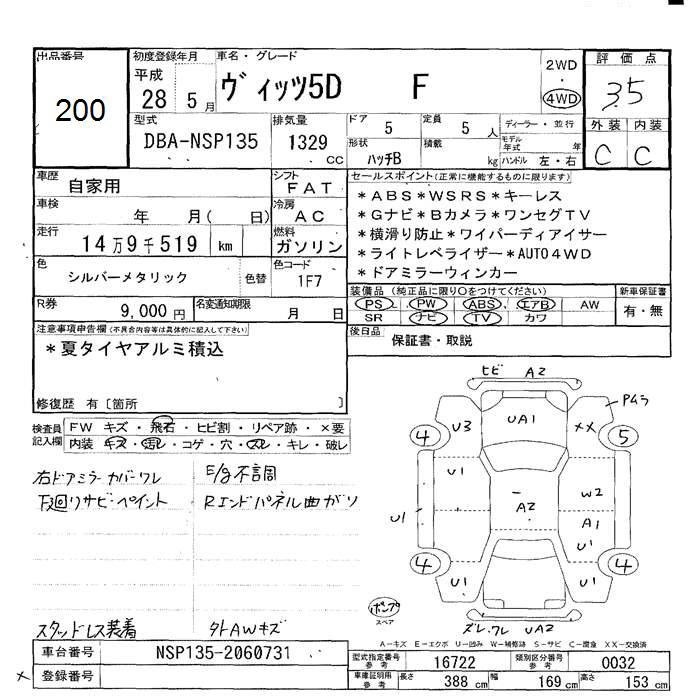 出品番号
200
初度登録年月
平成
28 5月
車名・グレード
ヴィッツ5D F
2WD
・
4WD
評価点
3.5
外装 内装
C C
型式
DBA-NSP135
排気量
1329
CC
ドア 5
定員 5 人
ディーラー・並行
形状 ハッチB
積載 kg
モデル年式 年
ハンドル 左・右
車歴 自家用
シフト FAT
車検 年 月( 日)
冷房 AC
走行 14万9千519 km
燃料 ガソリン
色 シルバーメタリック 色替
色コード 1F7
R券 9,000円
名変通知期限 月 日
セールスポイント(正常に機能するものに限ります)
*ABS*WSRS*キーレス
*Gナビ*Bカメラ*ワンセグTV
*横滑り防止*ワイパーディアイサー
*ライトレベライザー*AUTO4WD
*ドアミラーウィンカー
装備品(純正品に限り○をつけてください)
PS PW ABS エアB AW
SR ナビ TV カワ
新車保証書
有・無
後日品 保証書・取説
注意事項申告欄(不具合内容等は具体的に記入して下さい)
*夏タイヤアルミ積込
修復歴 有〔箇所 〕
検査員記入欄
FW キズ・飛石・ヒビ割・リペア跡・×要
内装 キズ・汚レ・コゲ・穴・スレ・キレ・破レ
右ドアミラーカバーワレ
E/g不調
下回リサビ・ペイント
Rエンドパネル曲ガリ
スタッドレス装着
外AWキズ
ヒビ A2
UA1
U3
××
PMラ
4
5
U1
W2
A2
A1
U1
U1
4
4
U1
U1
ポンプ
スペア
ズレ.ワレ UA2
A-キズ E-エクボ U-凹み W-補修跡 S-サビ C-腐食 XX-交換済
車台番号 NSP135-2060731
登録番号
×
型式指定番号 参考 16722
類別区分番号 参考 0032
車庫証明用 参考 長さ 388 cm 幅 169 cm 高さ 153 cm